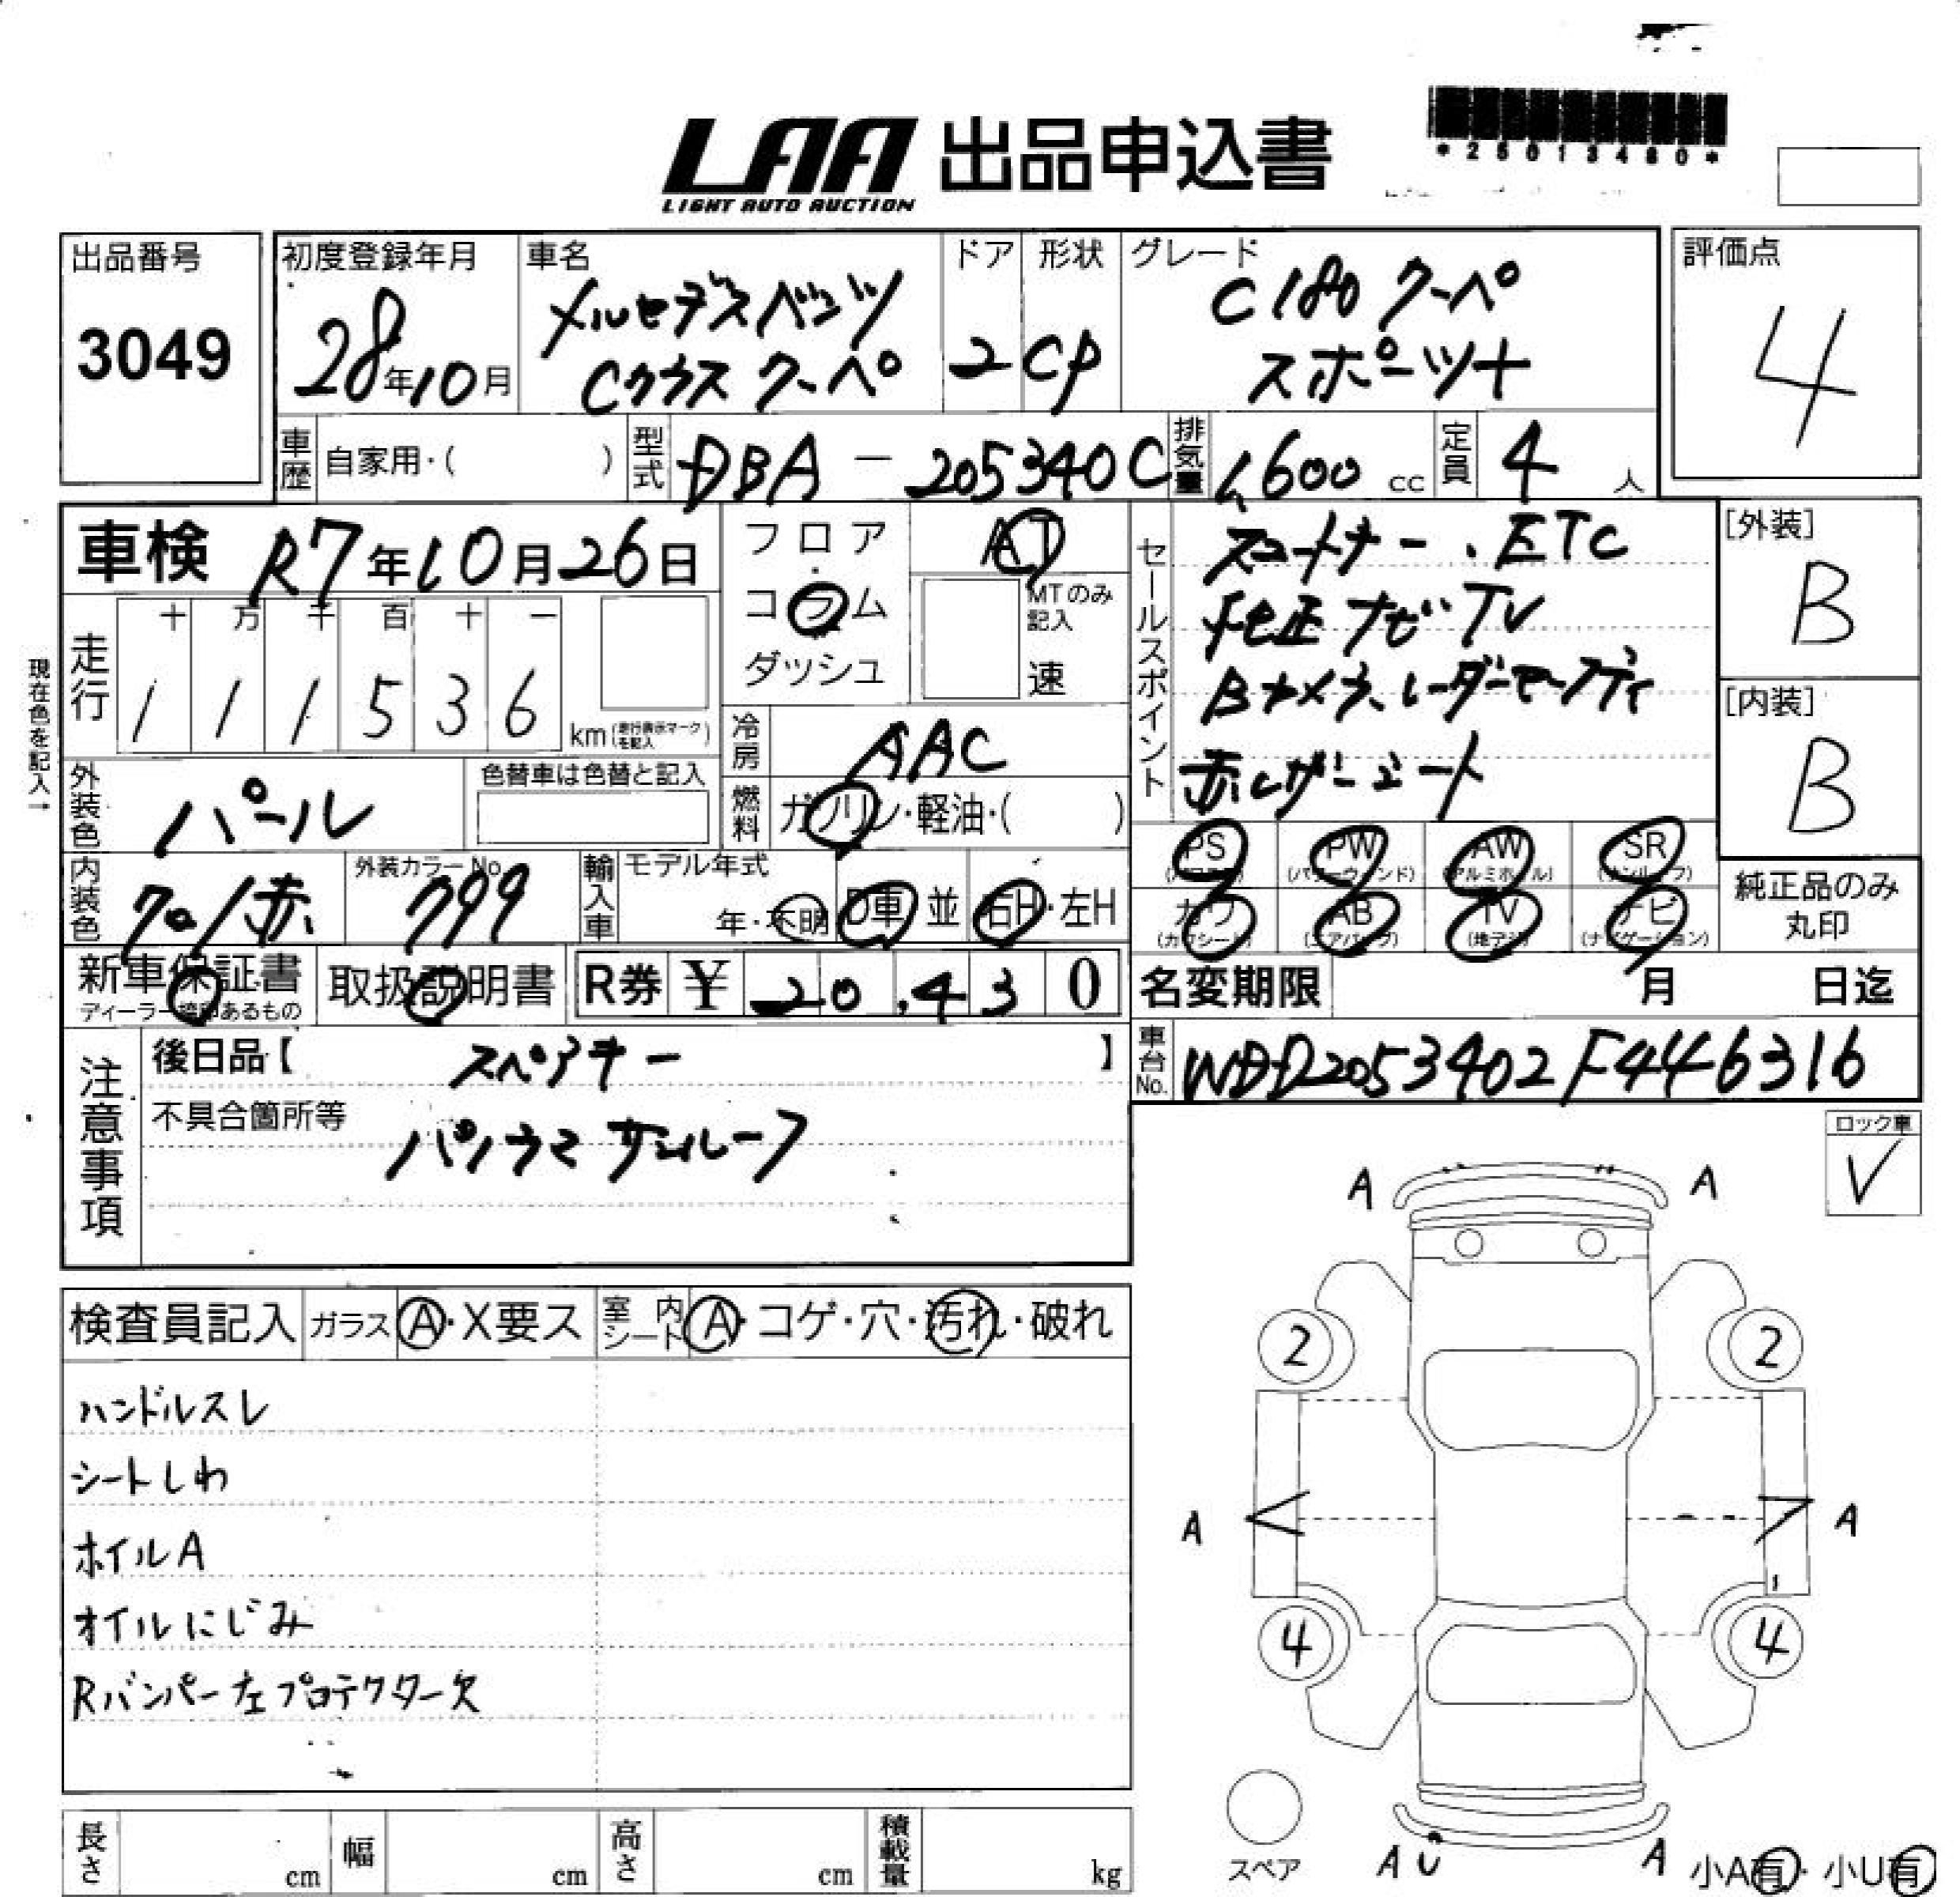 *25013480*
LAA 出品申込書
LIGHT AUTO AUCTION
出品番号
3049
初度登録年月
28年10月
車名
メルセデスベンツ
Cクラス クーペ
ドア
2
形状
CP
グレード
C180 クーペ
スポーツ+
評価点
4
車歴 自家用・( )
型式 DBA-205340C
排気量 1,600 cc
定員 4 人
車検 R7年10月26日
フロア
コラム
ダッシュ
AT
MTのみ記入
速
セールスポイント
スマートキー、ETC
純正ナビ・TV
Bカメラ、レーダーセーフティ
赤レザーシート
[外装]
B
[内装]
B
現在色を記入→
走行
十 万 千 百 十 一
1 1 1 5 3 6
km(走行表示マークを記入)
冷房 AAC
燃料 ガソリン・軽油・( )
外装色 パール
色替車は色替と記入
内装色 クロ/赤
外装カラーNo.
799
輸入車
モデル年式
年・不明
D車 並
右H・左H
PS PW AW SR
(パワステ) (パワーウィンド) (アルミホイル) (サンルーフ)
カワ AB TV ナビ
(カワシート) (エアバッグ) (地デジ) (ナビゲーション)
純正品のみ
丸印
新車保証書
ディーラー捺印あるもの
取扱説明書
R券 ¥ 20,430
名変期限 月 日迄
車台No. WDD2053402F446316
注意事項
後日品【 スペアキー 】
不具合箇所等
パノラマサンルーフ
ロック車
✓
検査員記入
ガラス A・X要ス
室内シート A・コゲ・穴・汚れ・破れ
ハンドルスレ
シートしわ
ホイルA
オイルにじみ
Rバンパー左プロテクター欠
A A
2 2
A A
4 4
スペア
A U A
小A有・小U有
長さ cm
幅 cm
高さ cm
積載量 kg